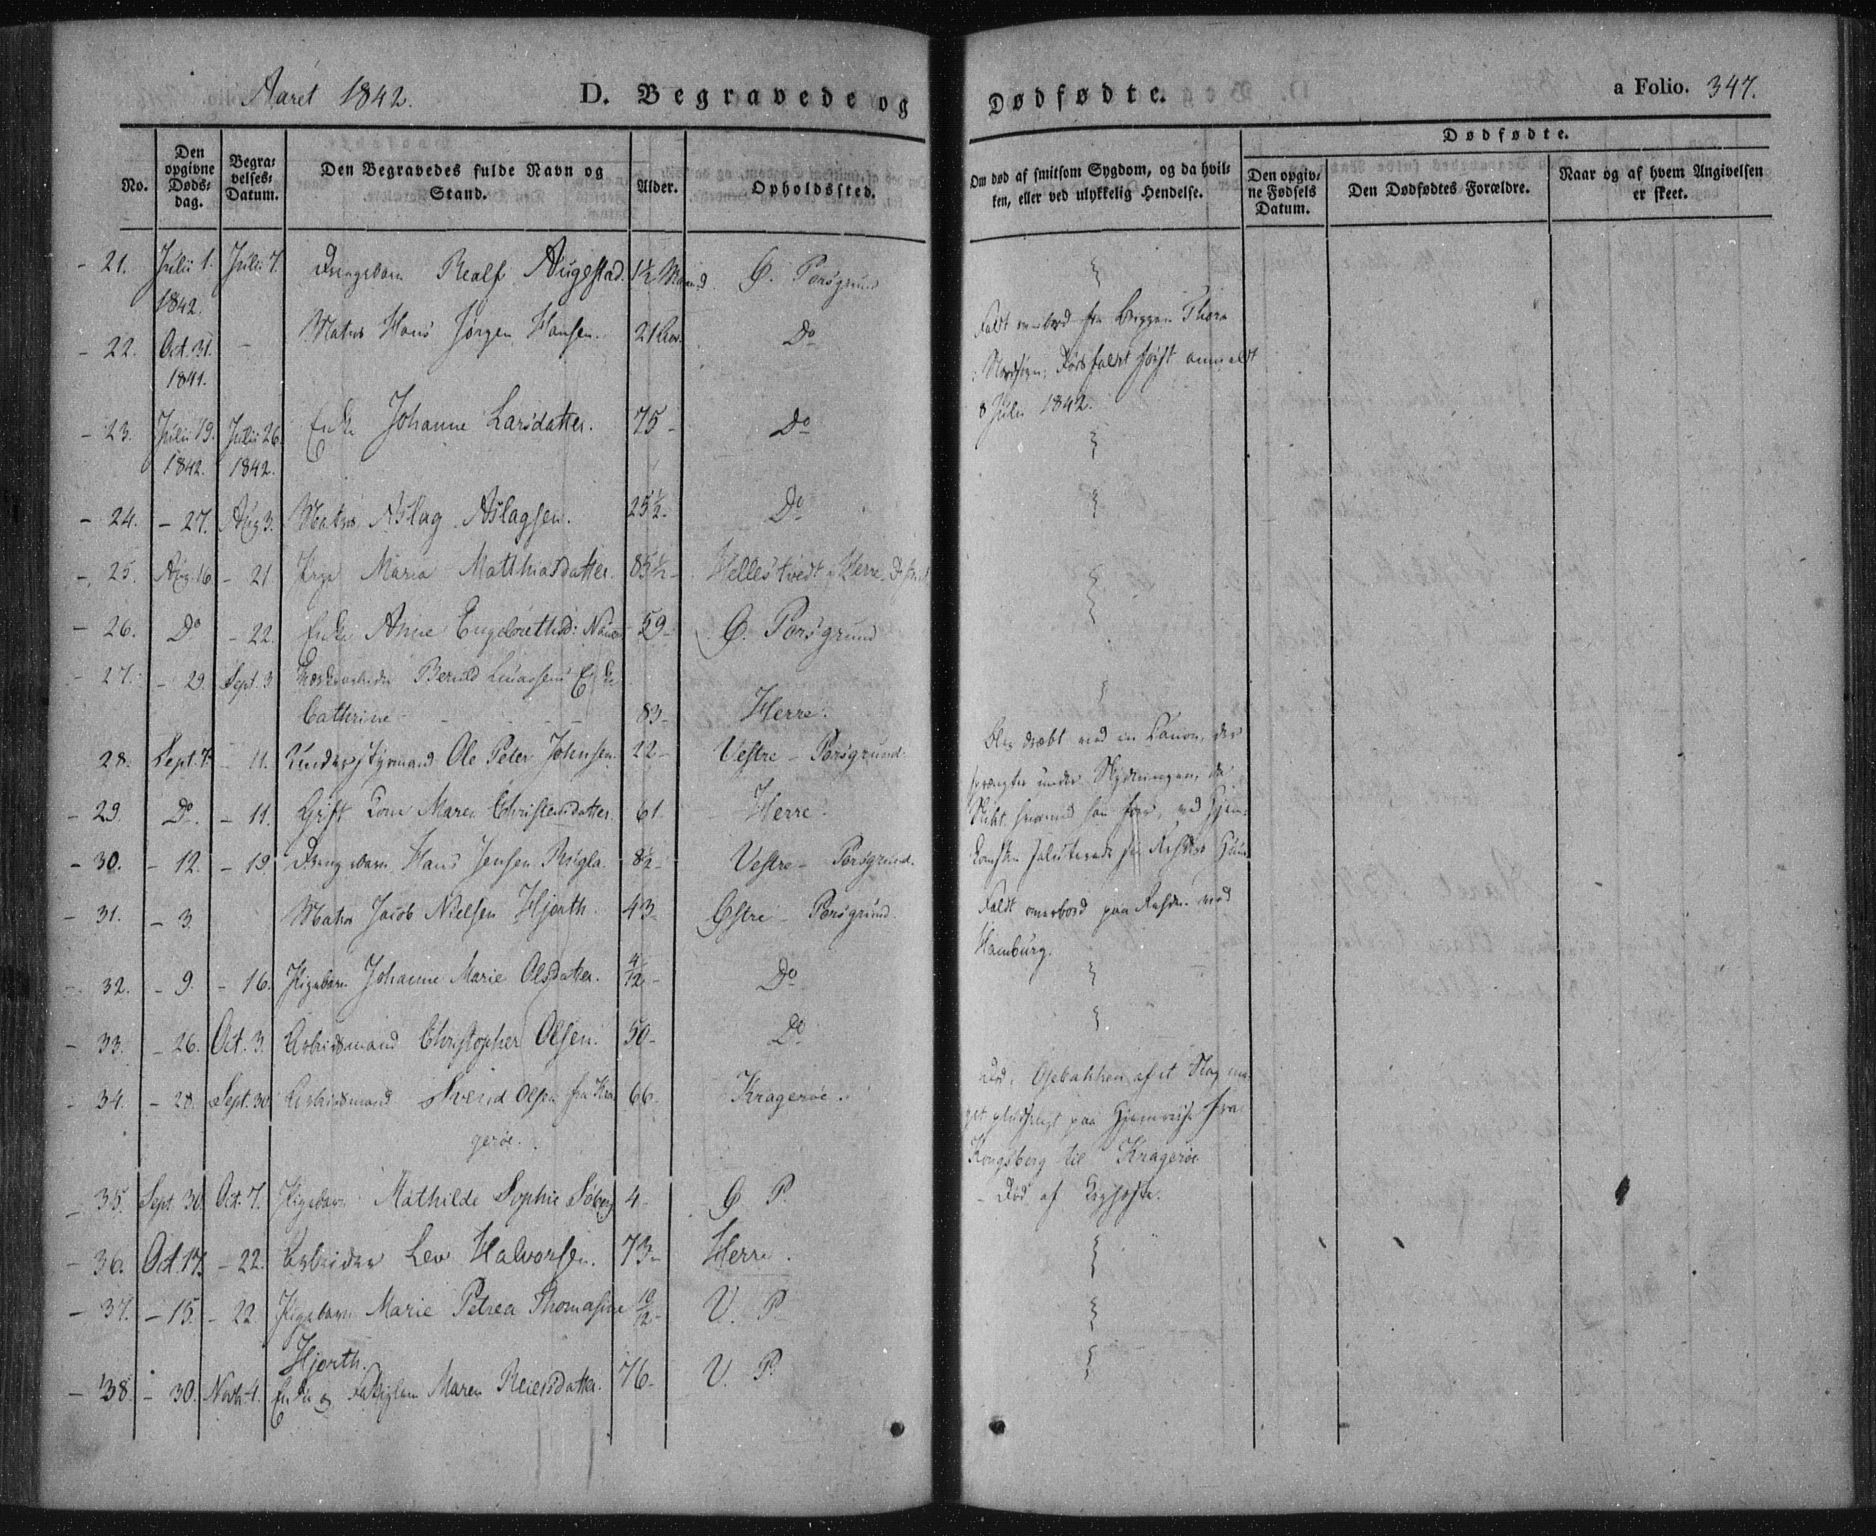 Aaret 1842. D. Begravede og Dødfødte. a Folio. 347.
Dødfødte.
No. Den opgivne Døds-dag. Begra-velses-Datum. Den Begravedes fulde Navn og Stand. Alder. Opholdssted. Om død af smitsom Sygdom, og da hvil-ken, eller ved ulykkelig Hendelse. Den opgiv-ne Fødsels Datum. Den Dødfødtes Forældre. Naar og af hvem Angivelsen er skeet.
- 21. Julii 1. 1842. Julii 7. Drengebarn Realf Augestad. 1½ Maaned Ø. Porsgrund
- 22. Oct. 31. 1841. - Matros Hans Jørgen Hansen. 21 Aar. Do Faldt overbord fra Briggen Thora
i Nordsøen, Dødsfaldet først anmeldt
8 Julii 1842.
- 23. Julii 19. 1842. Julii 26. 1842. Enke Johanne Larsdatter. 75 - Do
- 24. - 27. Aug 3. Matros Aslag Aslagsen. 25½ - Do
- 25. Aug. 16 - 21 Pige Maria Matthiasdatter. 85½ - Hellestvedt Herre
- 26. Do - 22. Enke Anne 59 - Ø. Porsgrund
- 27. - 29. Sept. 3 Enke
Cathrine - - - - 83 - Herre.
28. Sept. 7. - 11. Understyrmand Ole Peter Johnsen 22 - Vestre - Porsgrund. Blev dræbt ved en Canon, der
sprængtes under Skydningen, da
- 29. Do. - 11. Gift Kone Maren Christensdatter. 61 - Herre.
Skibet hvormed han foer, ved Hjem-
- 30. - 12. - 19. Drengebarn Hans Jensen Rugla. 8½ - Vestre - Porsgrund.
komsten saluterede
- 31. - 3. Matros Jacob Nielsen Hjorth. 43 - Østre - Porsgrund. Faldt overbord paa Rejsen ved
Hamburg.
- 32. - 9. - 16. Pigebarn Johanne Marie Olsdatter. 4/12 - Do
- 33. - 26. Oct. 3. Arbeidsmand Christopher Olsen. 50 - Do
- 34. - 28. Sept. 30 Arbeidsmand Svend Olsen fra Kra
gerøe. 66 - Kragerøe. Død i Osebakken af et Slag me-
get pludseligt paa Hjemreise fra
Kongsberg til Kragerøe
- 35. Sept. 30. Oct. 7. Pigebarn Mathilde Sophie Søberg 4 - Ø P. - Død af Kighoste.
- 36. Oct. 17. - 22. Arbeider Lev Halvorsen. 73 - Herre.
- 37. - 15. - 22 Pigebarn Marie Petrea Thomasine
Hjorth. 10/12 - V. P.
- 38. - 30. Novbr. 4. Enke og Fattiglem Maren Reiersdatter. 76 - V. P.